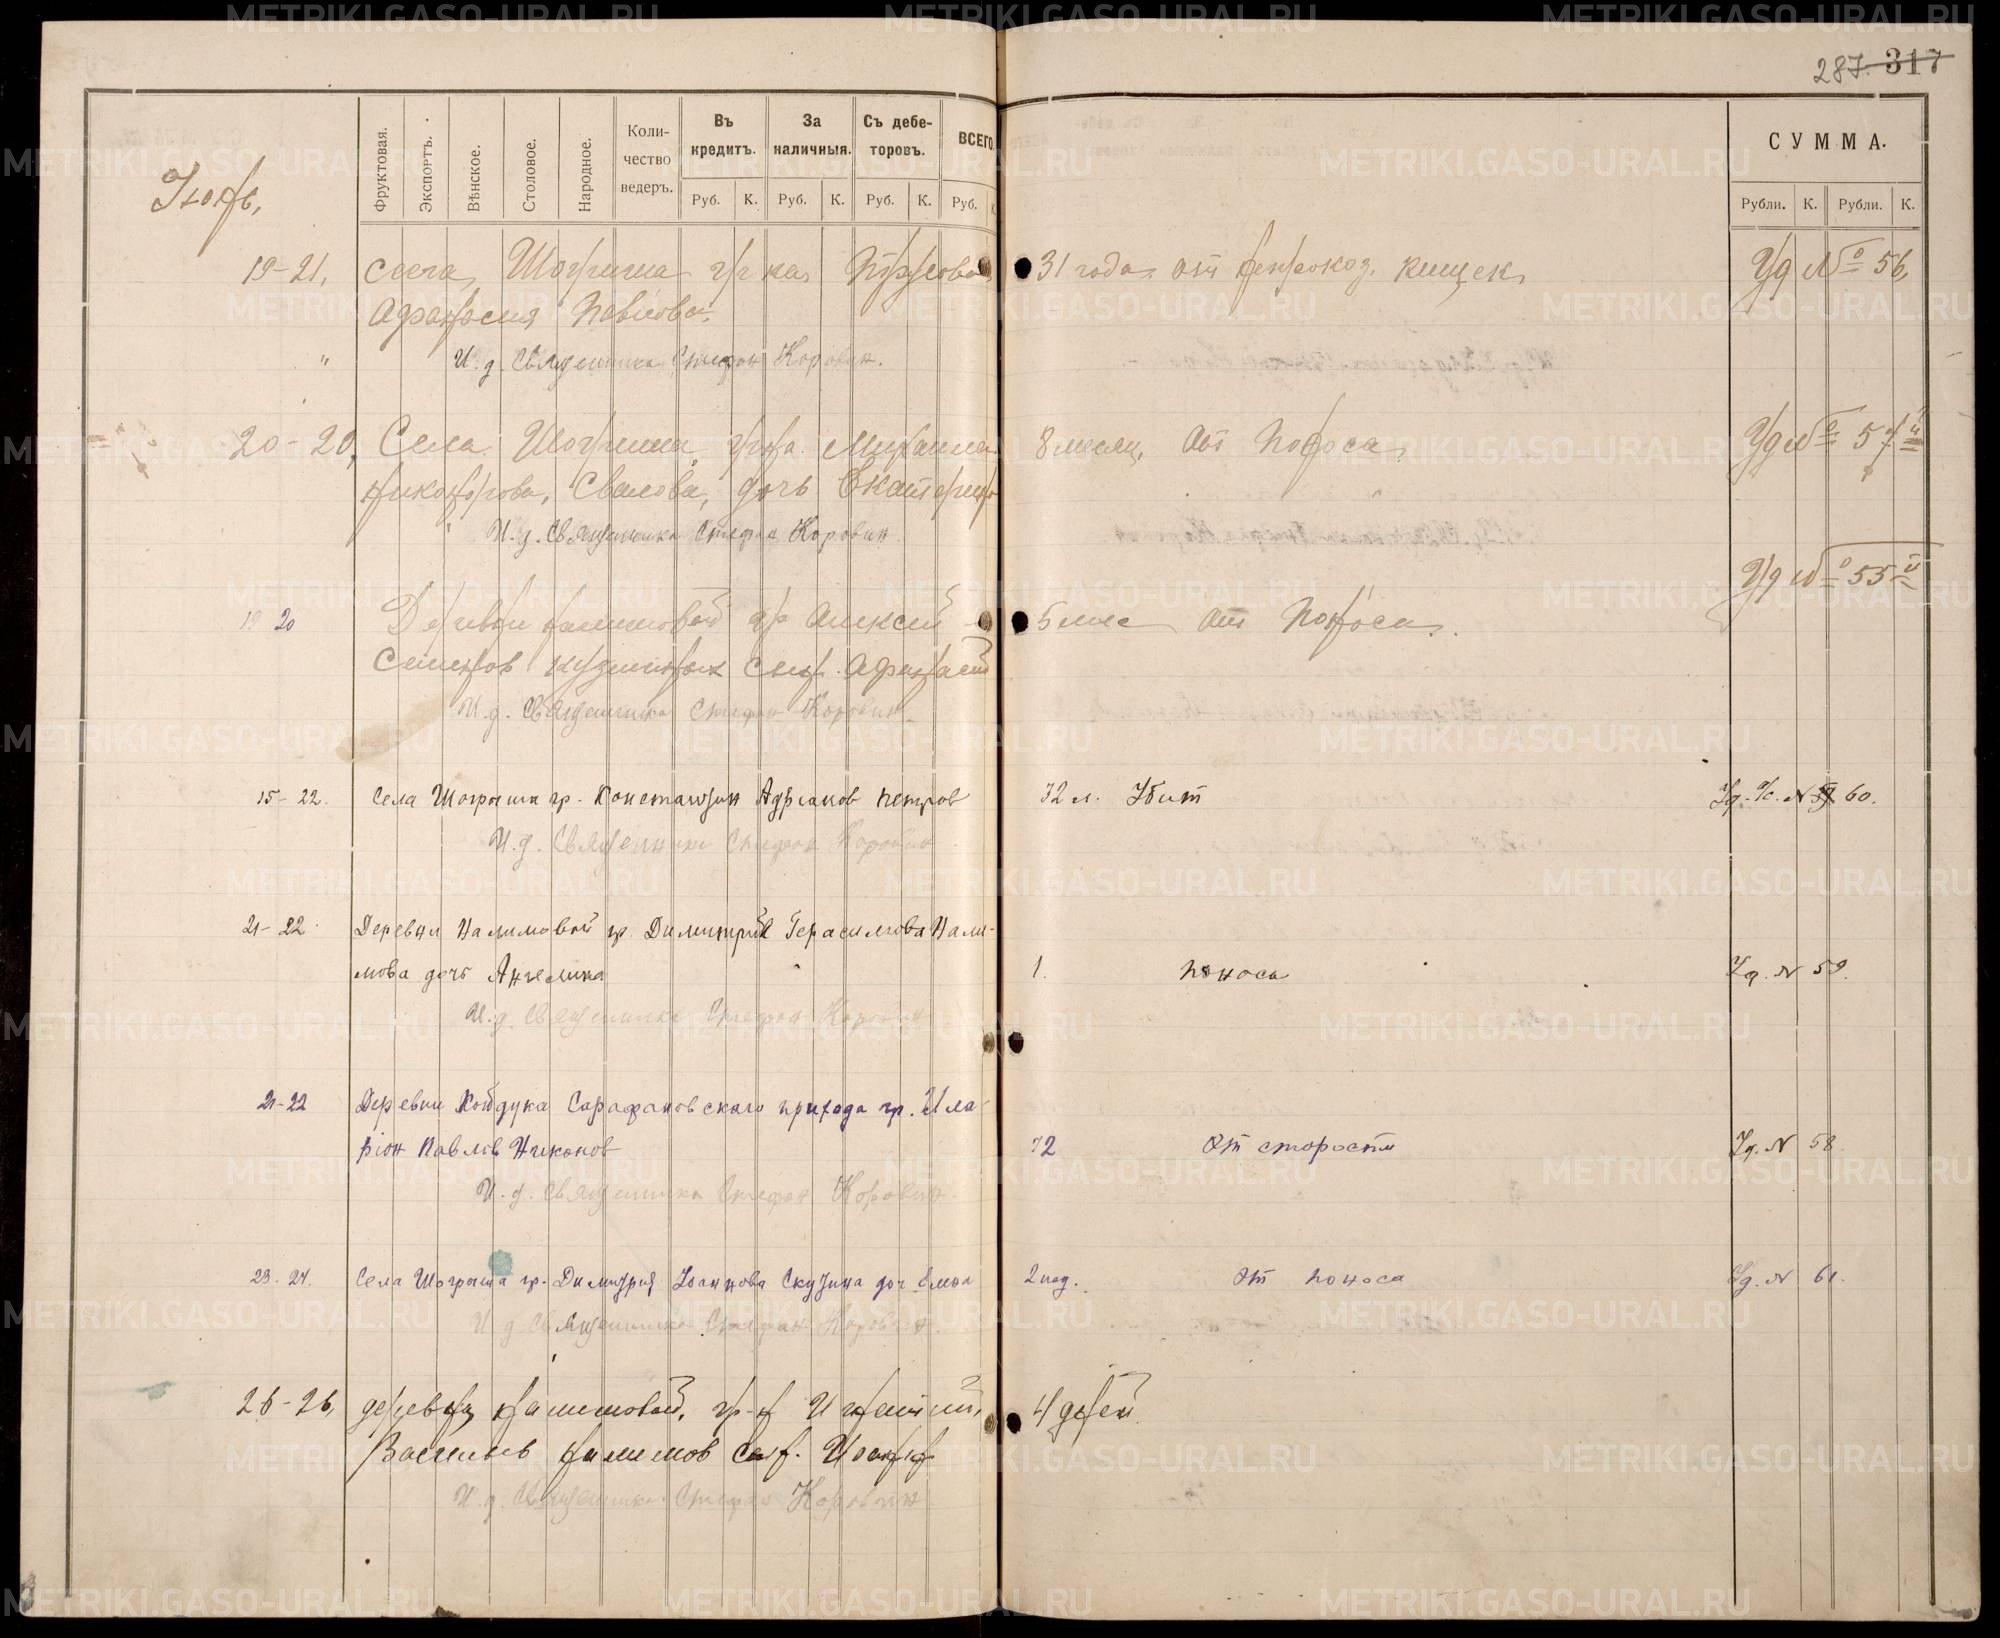 287. 317
Фруктовая.
Экспортъ.
Вѣнское.
Столовое.
Народное.
Коли-
чество
ведеръ.
Въ
кредитъ.
За
наличныя.
Съ дебе-
торовъ.
ВСЕГО
Руб. К. Руб. К. Руб. К. Руб.
СУММА.
Рубли. К. Рубли. К.
19-21, Села Шогриша гр-ка 31 года от кищек Уд № 56,
Афанасия Павлова
" И. д. Священника Стефан Коровин.
20-20, Села Шогриша гр-на Михаила 8 месяц. От Поноса Уд № 57й
Никанорова, Свалова, дочь Екатерина
И. д. Священника Стефан Коровин
Уд № 55й
19 20 Деревни Налимовой гр Алексей 5 мес От Поноса.
Семенов сын Афанасий
И. д. Священника Стефан Коровин
15-22. Села Шогриша гр. Константин Адрианов Петров 72 л. Убит Уд. № 60.
И. д. Священника Стефан Коровин
21-22 Деревни Налимовой гр. Димитрий Герасимова Нали-
мова дочь Ангелина 1. поноса Уд. № 59.
И. д. Священника Стефан Коровин
21-22 Деревни Койдука Сарафановского прихода гр. Ила-
рион Павлов Никонов 72 От старости Уд. № 58
И. д. Священника Стефан Коровин
23-24. Села Шогриша гр. Димитрия Иоаннова Скутина доч Елена 2 нед. От поноса Уд. № 61.
И. д. Священника Стефан Коровин.
26-26, деревни Налимовой, гр-н Игнатий, 4 дней
Васильев Налимов сын. Иоанн
И. д. Священника Стефан Коровин
METRIKI.GASO-URAL.RU